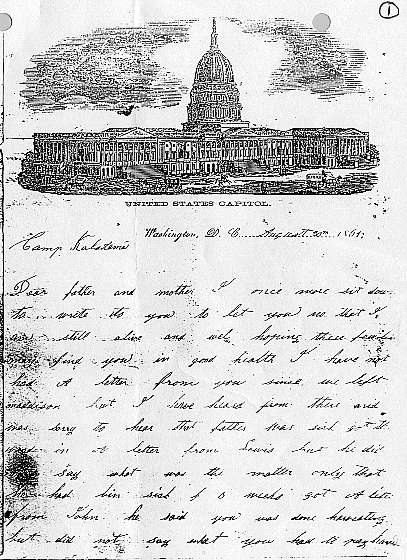 1
UNITED STATES CAPITOL.
Washington, D. C. August 20th 1861.
Camp Kalorama
Dear father and mother I once more sit dow
to write to you to let you no that I
am still alive and well hoping these few lin
may find you in good health I have not
had A letter from you since we left
maddison but I have heard from there and
was sorry to hear that father was sick got th
word in A letter from Lewis but he did
say what was the matter only that
had bin sick 6 weeks got A lett
from John he said you was done harvesting
but did not say what you had it